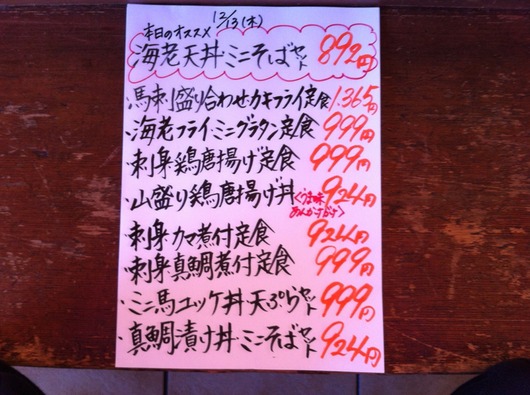 12/13(木)
本日のオススメ
海老天丼・ミニそばセット 892円
・馬刺盛り合わせ・カキフライ定食 1.365円
・海老フライ・ミニグラタン定食 999円
・刺身・鶏唐揚げ定食 999円
・山盛り鶏唐揚げ丼 924円
<うま味
あんかけがけ>
・刺身・カマ煮付定食 924円
・刺身・真鯛煮付定食 999円
・ミニ馬ユッケ丼・天ぷらセット 999円
・真鯛漬け丼・ミニそばセット 924円